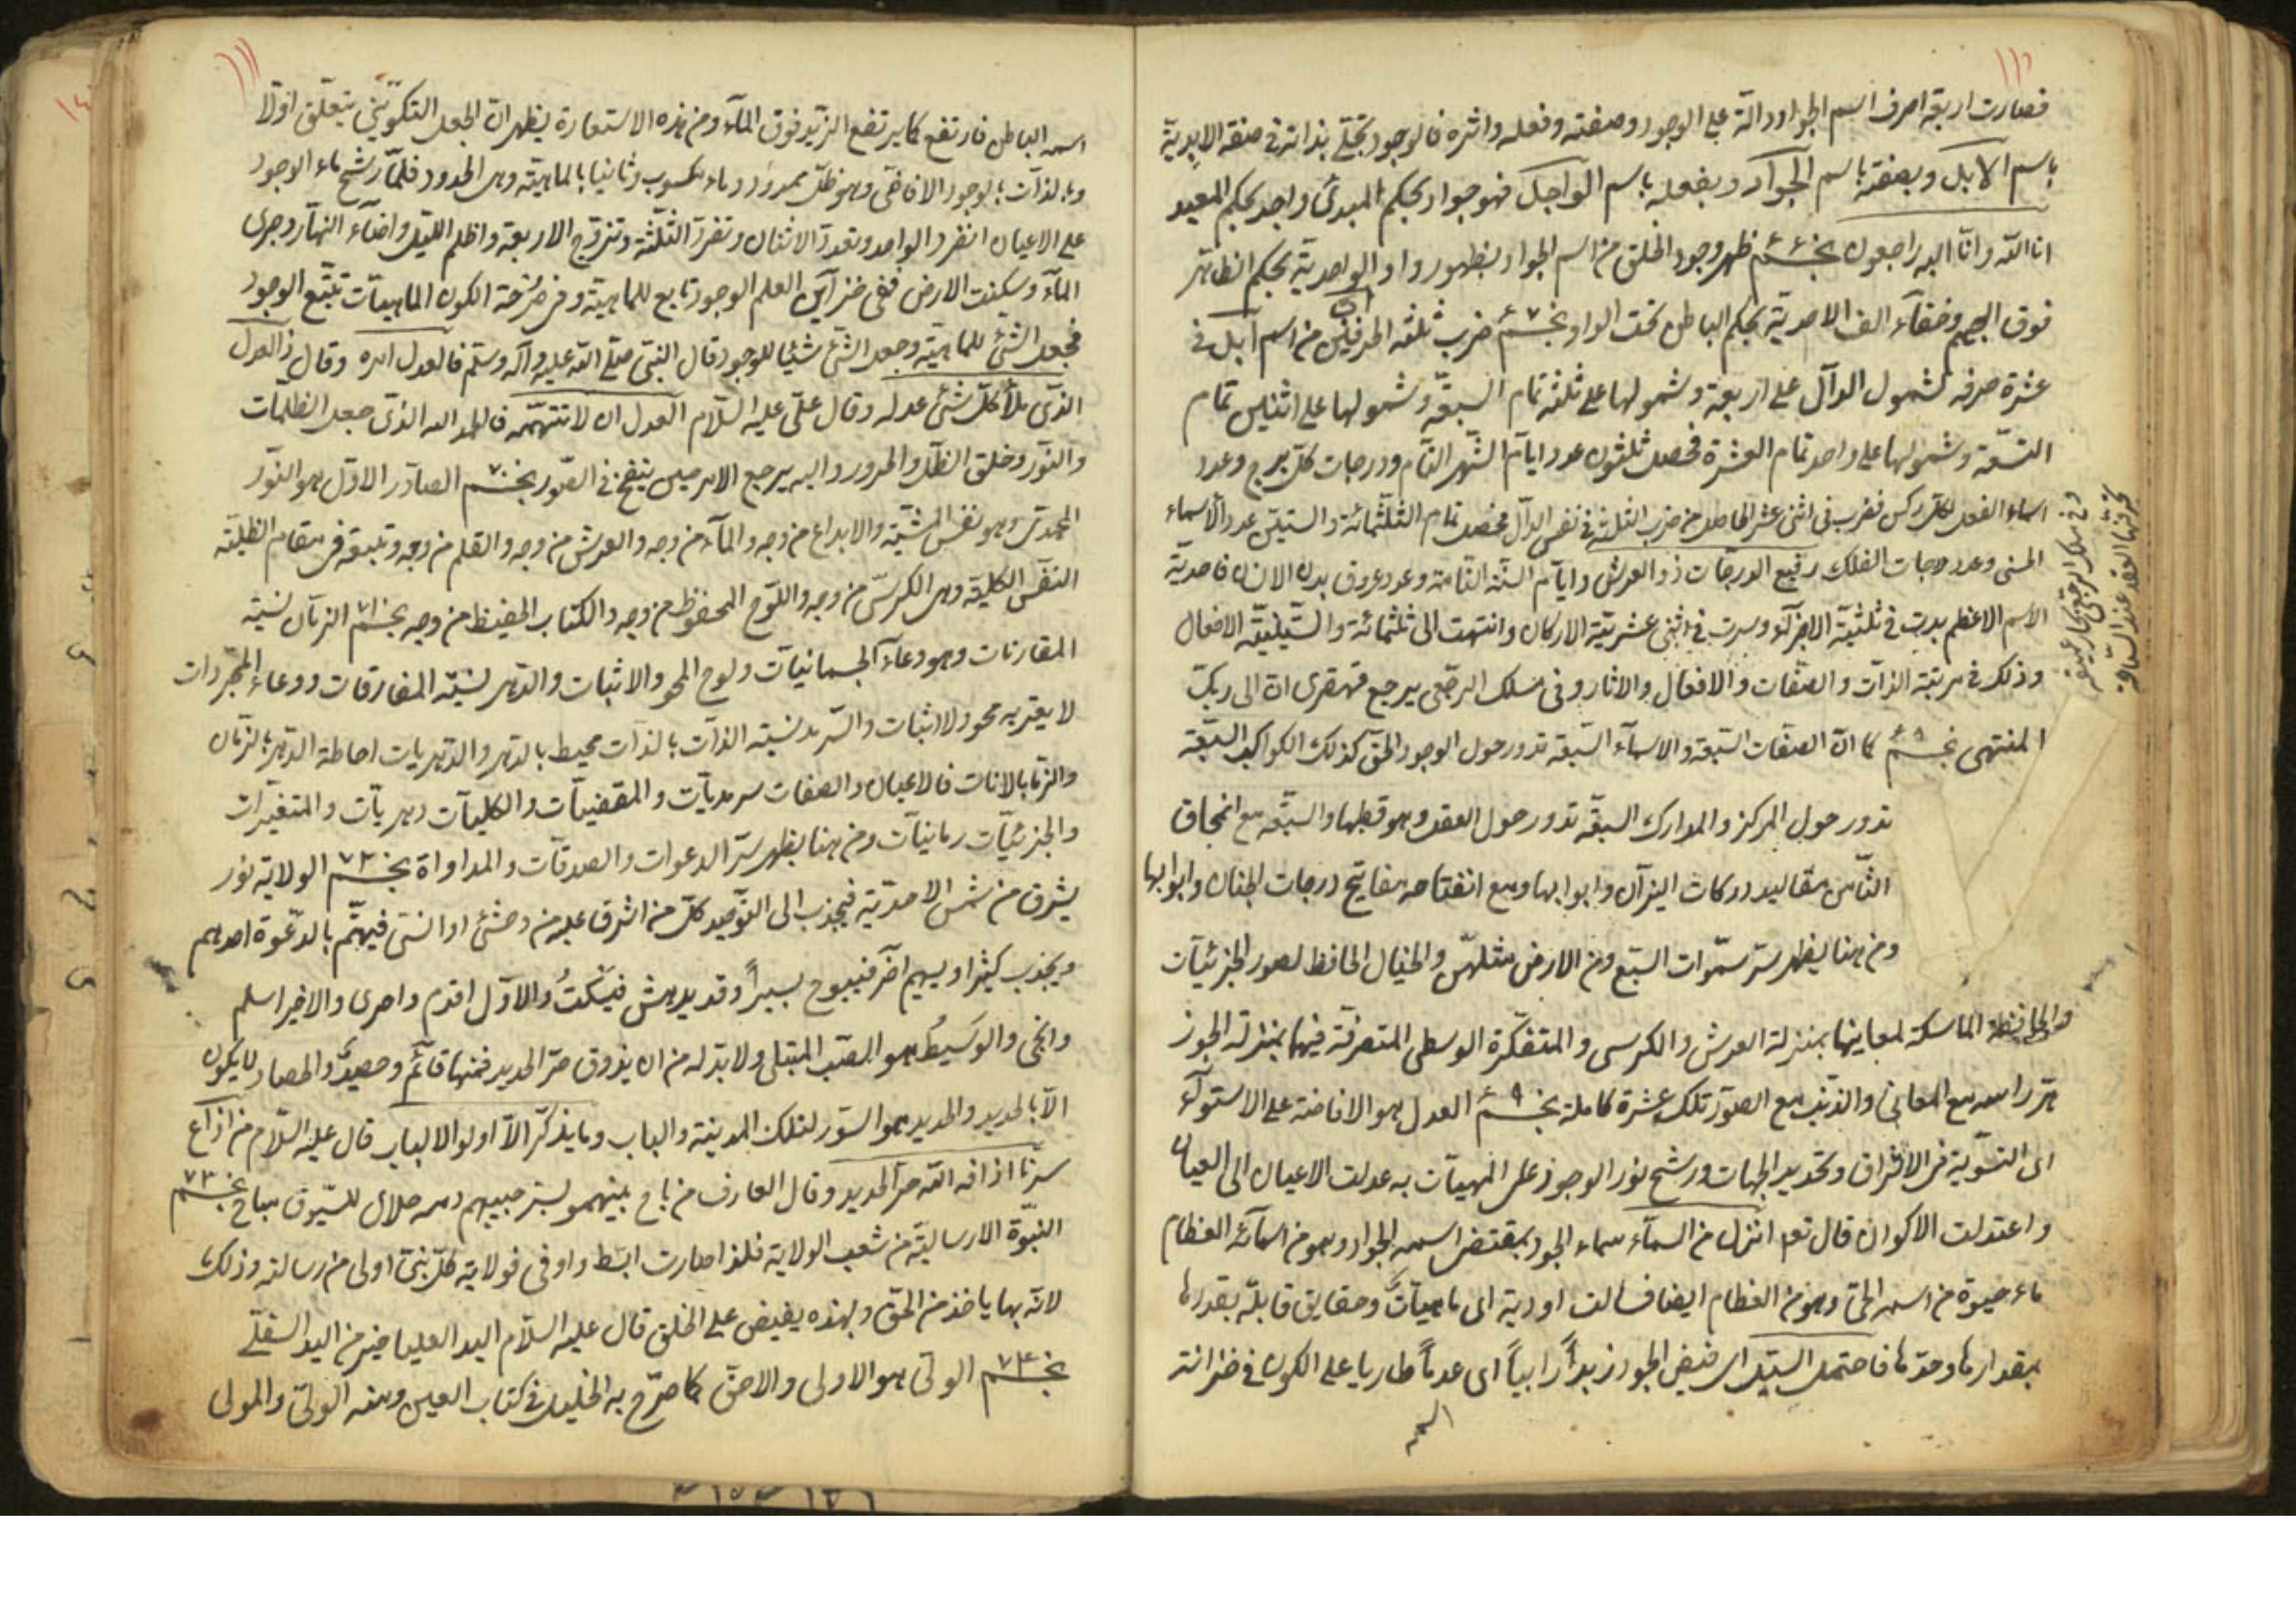 ١١٠
فصارت اربعة احرف اسم الجواد دالة على الوجود وصفته وفعله واثره فالوجود تجلى بذاته في صفة الابدية
باسم الابد وبصفته باسم الجواد وبفعله باسم الواجد فهو جواد بحكم المبدئ واجد بحكم المعيد
انا لله وانا اليه راجعون نجم ظهر وجود الخلق من اسم الجواد بظهور واو الواحدية بحكم الظاهر
فوق الجيم وخفاء الف الاحدية بحكم الباطن تحت الواو نجم ضرب ثلثة الحرفين من اسم ابد في
عشرة حرفه لشمول الدال على اربعة وشمولها على ثلثة تمام السبعة وشمولها على اثنين تمام
التسعة وشمولها على واحد تمام العشرة فحصل ثلثون عدد ايام الشهر التام ودرجات كل برج وعدد
اسماء الفعل لكل ركن فضرب في اثنى عشر الحاصل من ضرب الثلثة في نفس الدال فحصل تمام الثلثمائة والستين عدد الاسماء
الحسنى وعدد درجات الفلك رفيع الدرجات ذو العرش وايام السنة التامة وعدد عروق بدن الانسان فاحدية
الاسم الاعظم بدت في ثلثية الاجزاء وسرت في اثنى عشرية الاركان وانتهت الى ثلثمائة والستينية الافعال
وذلك في مرتبة الذات والصفات والافعال والاثار وفى مسلك الرجعى يرجع قهقرى ان الى ربك
المنتهى نجم كما ان الصفات السبعة والاسماء السبعة تدور حول الوجود الحق كذلك الكواكب السبعة
تدور حول المركز والمدارك السبعة تدور حول العقل وهو قطبها والسبعة مع
الثامن مقاليد دركات النيران وابوابها ومع انفتاحه مفاتيح درجات الجنان وابوابها
ومن هنا يظهر سر سموات السبع ومن الارض مثلهن والخيال الحافظ لصور الجزئيات
والحافظة الماسكة لمعاينها بمنزلة العرش والكرسى والمتفكرة الوسطى المتصرفة فيهما بمنزلة الجوز
هر راسه مع المعانى والذنب مع الصور تلك عشرة كاملة نجم ٩ العدل هو الافاضة على الاستواء
اى التسوية فى الاشراق وتحديد الجهات ورشح نور الوجود على المهيات به عدلت الاعيان الى العيان
واعتدلت الاكوان قال تعم انزل من السماء سماء الجود بمقتضى اسمه الجواد وهو من اسمائه العظام
ماء حيوة من اسمه الحى وهو من العظام ايضا فسالت اودية اى ماهيات وحقايق قابلة بقدرها
بمقدارها وحدها فاحتمل السيل اى فيض الجود زبدا رابيا اى عدما طاريا على الكون فى خزانة
اسمه
١١١
اسمه الباطن فارتفع كما يرتفع الزبد فوق الماء ومن هذه الاستعارة يظهر ان الجعل التكوينى يتعلق اولا
وبالذات بالوجود الافاضى وهو ظل ممدود وماء مسكوب وثانيا بالماهية وهى الحدود فلما رشح ماء الوجود
على الاعيان انفرد الواحد وتعدد الاثنان وتفرد الثلثة وتزوج الاربعة واظلم الليل واضاء النهار وجرى
الماء وسكنت الارض ففى خزاين العلم الوجود تابع للماهية وفى مزرعة الكون الماهيات تتبع الوجود
فجعل الشئ للماهية وجعل الشئ شيئا للوجود قال النبى صلى الله عليه وآله وسلم فالعدل امره وقال ذا العدل
الذى ملأ كل شئ عدله وقال على عليه السلام العدل ان لا تتهمه فالحمد لله الذى جعل الظلمات
والنور وخلق الظل والحرور واليه يرجع الامر حين ينفخ فى الصور نجم ٧٠ الصادر الاول هو النور
المحمدى وهو نفس المشية والابداع من وجه والماء من وجه والعرش من وجه والقلم من وجه وتبعته فى مقام الظلية
النفس الكلية وهى الكرسى من وجه واللوح المحفوظ من وجه والكتاب الحفيظ من وجه نجم ٧١ الزمان نسبة
المقارنات وهو وعاء الجسمانيات ولوح المحو والاثبات والدهر نسبة المفارقات ووعاء المجردات
لا يعتريه محو ولا اثبات والسرمد نسبة الذات بالذات محيط بالدهر والدهريات احاطة الدهر بالزمان
والزمان بالانات فالاعيان والصفات سرمديات والمقضيات والكليات دهريات والمتغيرات
والجزئيات زمانيات ومن هنا يظهر سر الدعوات والصدقات والمداواة نجم ٧٢ الولاية نور
يشرق من شمس الاحدية فيجذب الى التوحيد كل من اشرق عليه من وحشى او انسى فيهتم بالدعوة احدهم
ويجذب كثيرا ويهيم آخر فيبوح يسيرا وقد يدهش فيسكت والاول اقدم واحرى والاخير اسلم
وانجى والوسيط هو الصب المبتلى ولا بد له من ان يذوق حر الحديد فمنها قائم وحصيد والحصاد لا يكون
الا بالحديد والحديد هو السور لتلك المدينة والباب وما يذكر الا اولوا الالباب قال عليه السلام من اذاع
سرنا اذاقه الله حر الحديد وقال العارف من باح بينهم بسر حبيبهم دمه حلال للسيوف مباح نجم ٧٣
النبوة الارسالية من شعب الولاية فلذا صارت ابسط واوفى فولاية كل نبى اولى من رسالته وذلك
لانه بها ياخذ من الحق وبهذه يفيض على الخلق قال عليه السلام اليد العليا خير من اليد السفلى
نجم ٧٤ الولى هو الاولى والاحق كما صرح به الخليل فى كتاب العين ومنه الولى والمولى